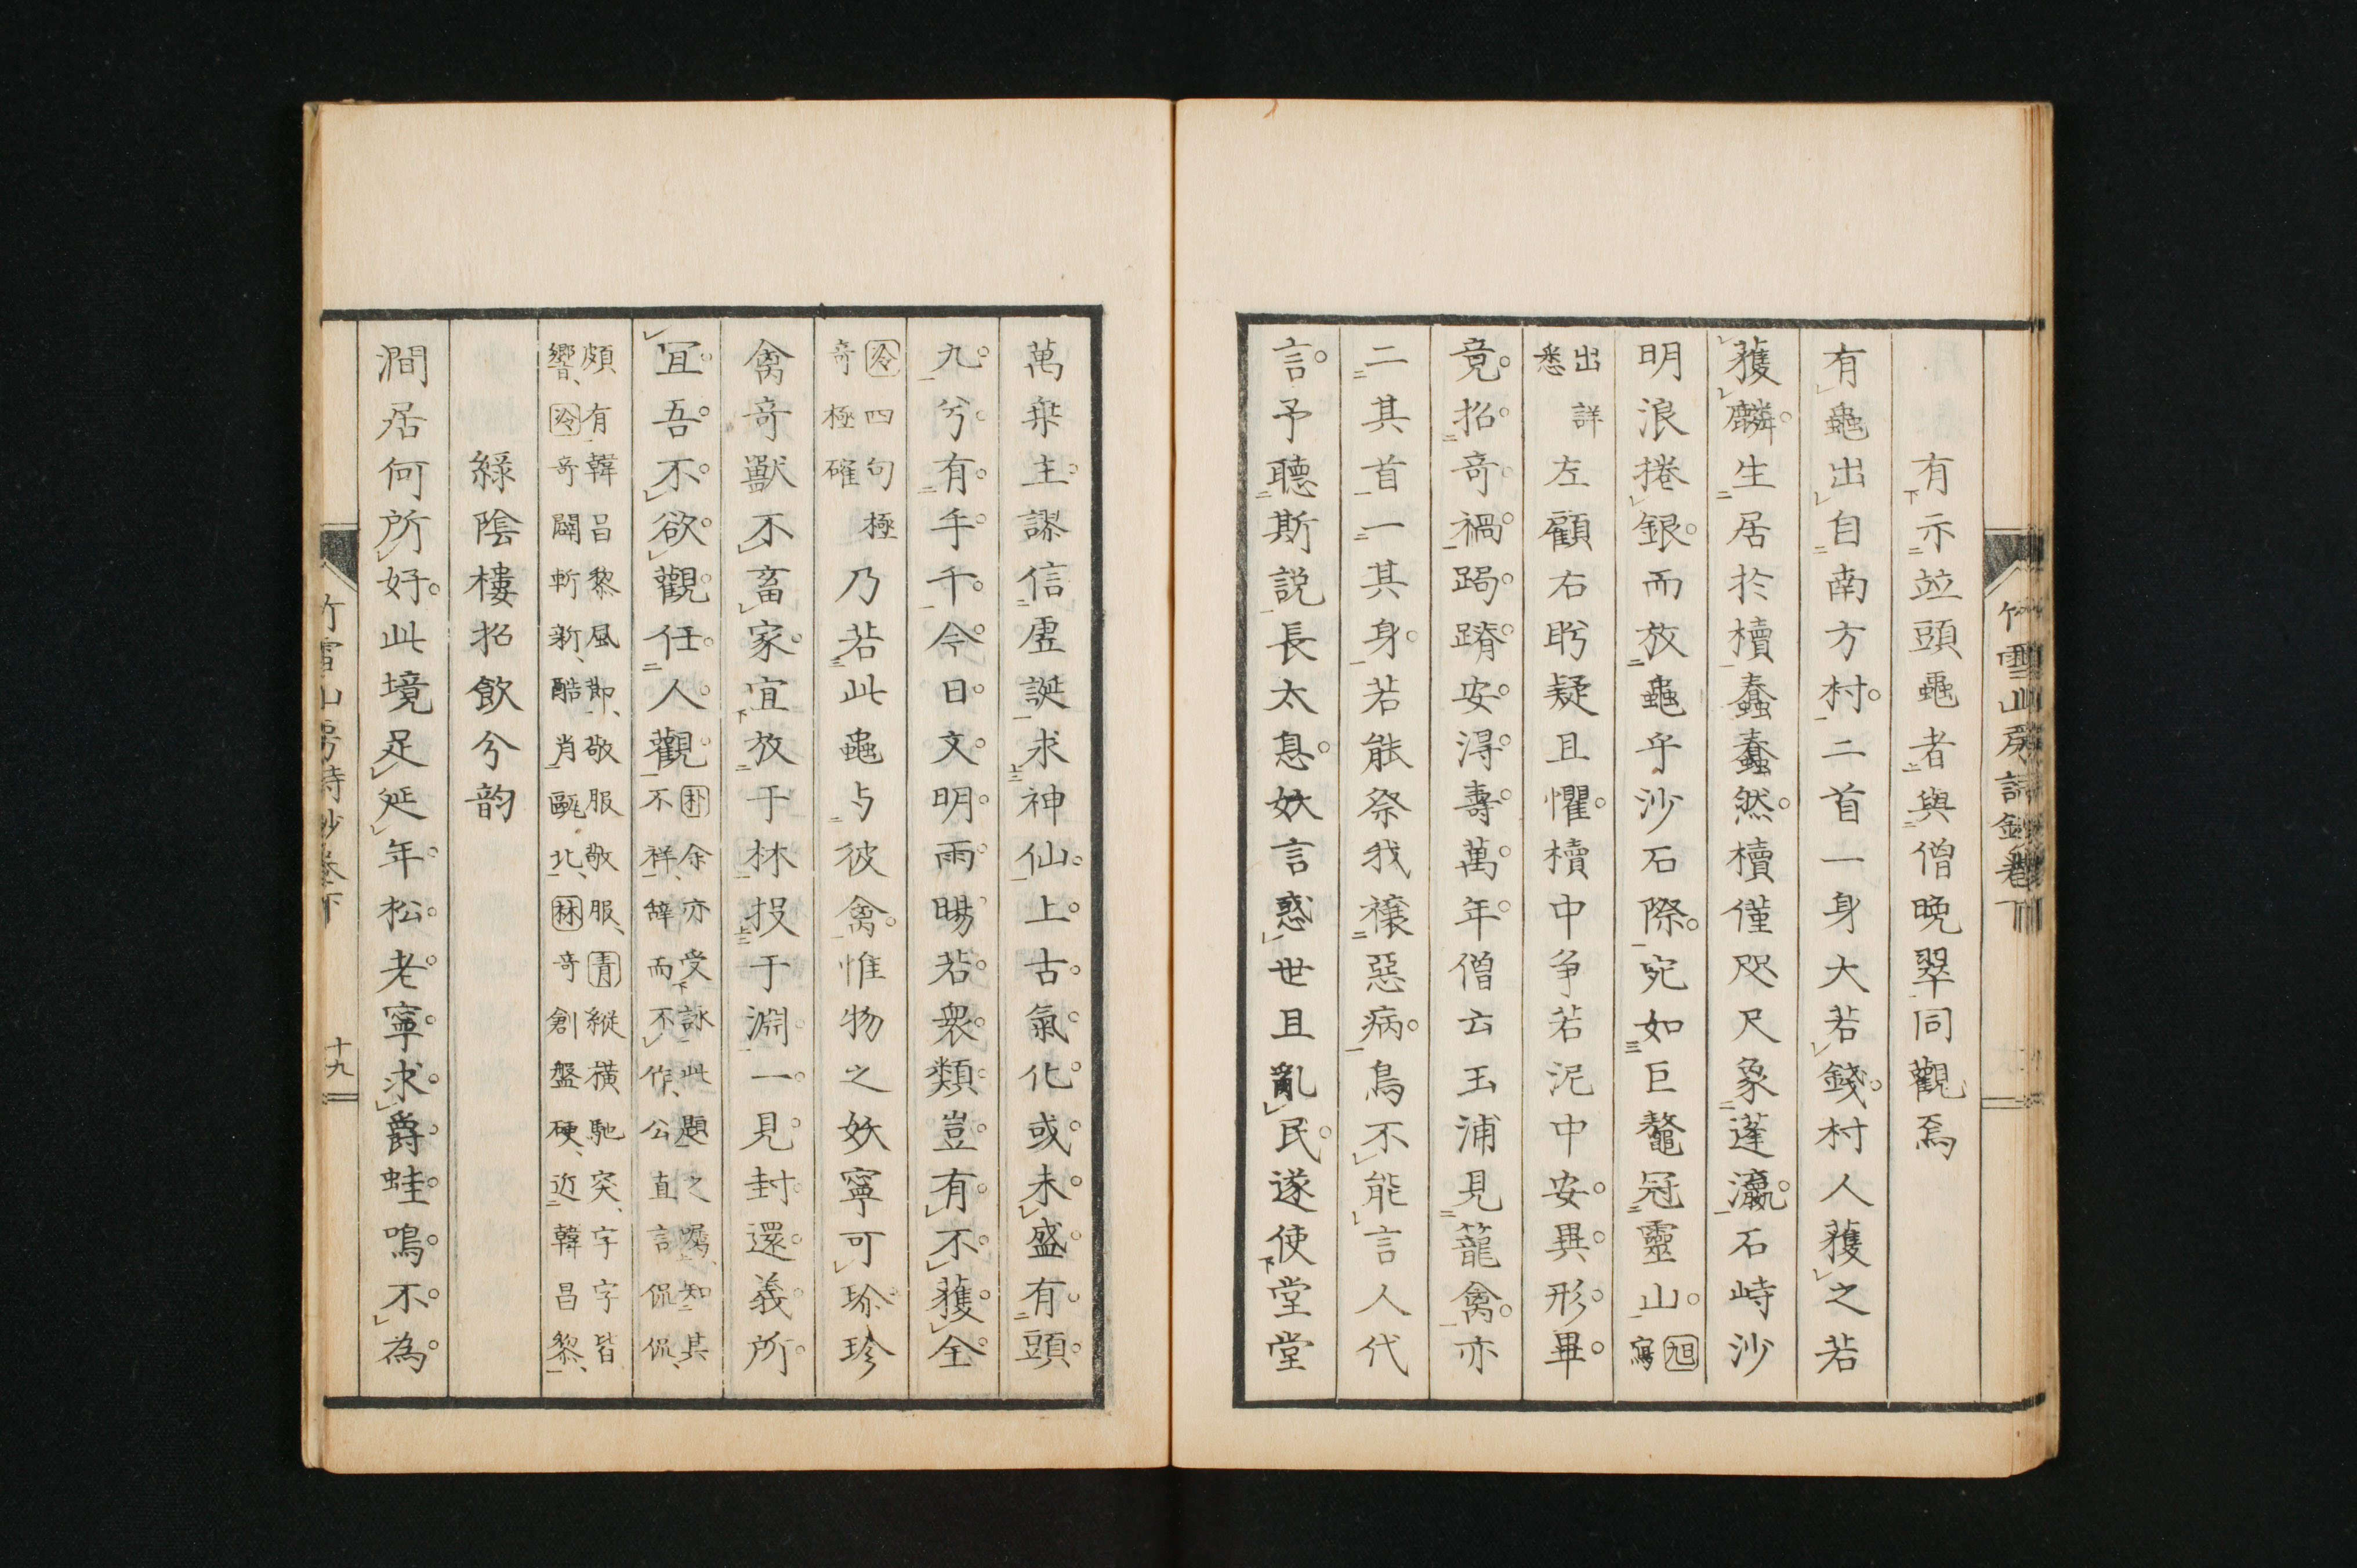 有示竝頭龜者與僧晚翠同觀焉
有龜出自南方村二首一身大若錢村人獲之若
獲麟生居於櫝蠢蠢然櫝僅咫尺象蓬瀛石峙沙
明浪捲銀而放龜乎沙石際宛如巨鼇冠靈山旭寫
出詳悉左顧右眄疑且懼櫝中爭若泥中安異形畢
竟招奇禍跼蹐安得壽萬年僧云玉浦見籠禽亦
二其首一其身若能祭我禳惡病鳥不能言人代
言予聽斯説長太息妖言惑世且亂民遂使堂堂
萬乘主謬信虛誕求神仙上古氣化或未盛有頭
九兮有手千今日文明雨暘若衆類豈有不獲全
冷四句極奇極確乃若此龜与彼禽惟物之妖寧可珎珍
禽奇獸不畜家宜放于林投于淵一見封還義所
宜吾不欲觀任人觀朴余亦受詠此題之囑知其不祥辭而不作公直言侃侃
頗有韓昌黎風節敬服敬服青縱橫馳突字字皆
響冷奇闢斬新酷肖甌北林奇創盤硬近韓昌黎
綠陰樓招飲分韵
澗居何所好此境足延年松老寧求爵蛙鳴不為
竹雪山房詩鈔卷下
十九